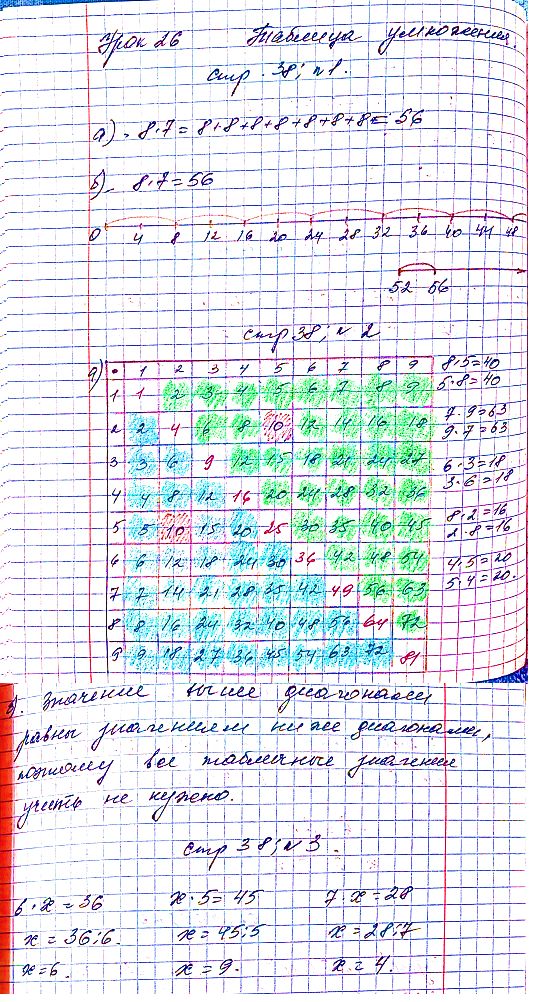 Урок 26 Таблица умножения.
стр. 38; №1.
а) 8·7 = 8+8+8+8+8+8+8 = 56
б) 8·7 = 56
0 4 8 12 16 20 24 28 32 36 40 44 48
52 56
стр 38; № 2
а) • 1 2 3 4 5 6 7 8 9 8·5=40
1 1 2 3 4 5 6 7 8 9 5·8=40
2 2 4 6 8 10 12 14 16 18 7·9=63
9·7=63
3 3 6 9 12 15 18 21 24 27 6·3=18
4 4 8 12 16 20 24 28 32 36 3·6=18
5 5 10 15 20 25 30 35 40 45 8·2=16
2·8=16
6 6 12 18 24 30 36 42 48 54 4·5=20
7 7 14 21 28 35 42 49 56 63 5·4=20.
8 8 16 24 32 40 48 56 64 72
9 9 18 27 36 45 54 63 72 81
в). Значение выше диагонали
равны значениям ниже диагонали,
поэтому все табличные значения
учить не нужно.
стр 38; №3.
6·x = 36 x·5 = 45 7·x = 28
x = 36:6. x = 45:5 x = 28:7
x = 6. x = 9. x = 4.